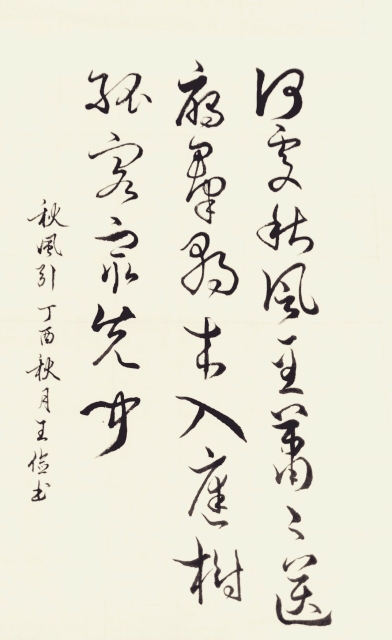 何處秋風至蕭々送
雁羣朝来入庭樹
孤客最先聞
秋風引 丁酉秋月王俭书